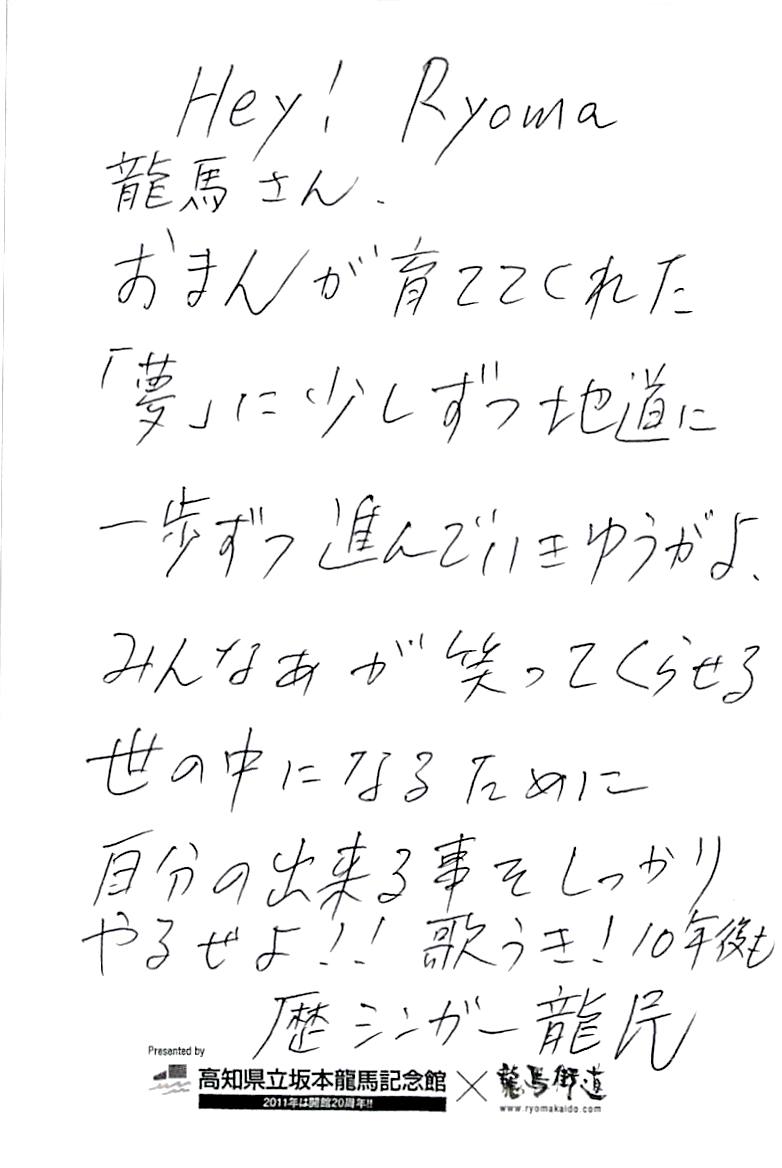 Hey! Ryoma
龍馬さん、
おまんが育ててくれた
「夢」に少しずつ地道に
一歩ずつ進んでいきゆうがよ、
みんなあが笑ってくらせる
世の中になるために
自分の出来る事をしっかり
やるぜよ!! 歌うき! 10年後も
歴シンガー龍民
Presented by
高知県立坂本龍馬記念館 × 龍馬街道
2011年は開館20周年!!
www.ryomakaido.com